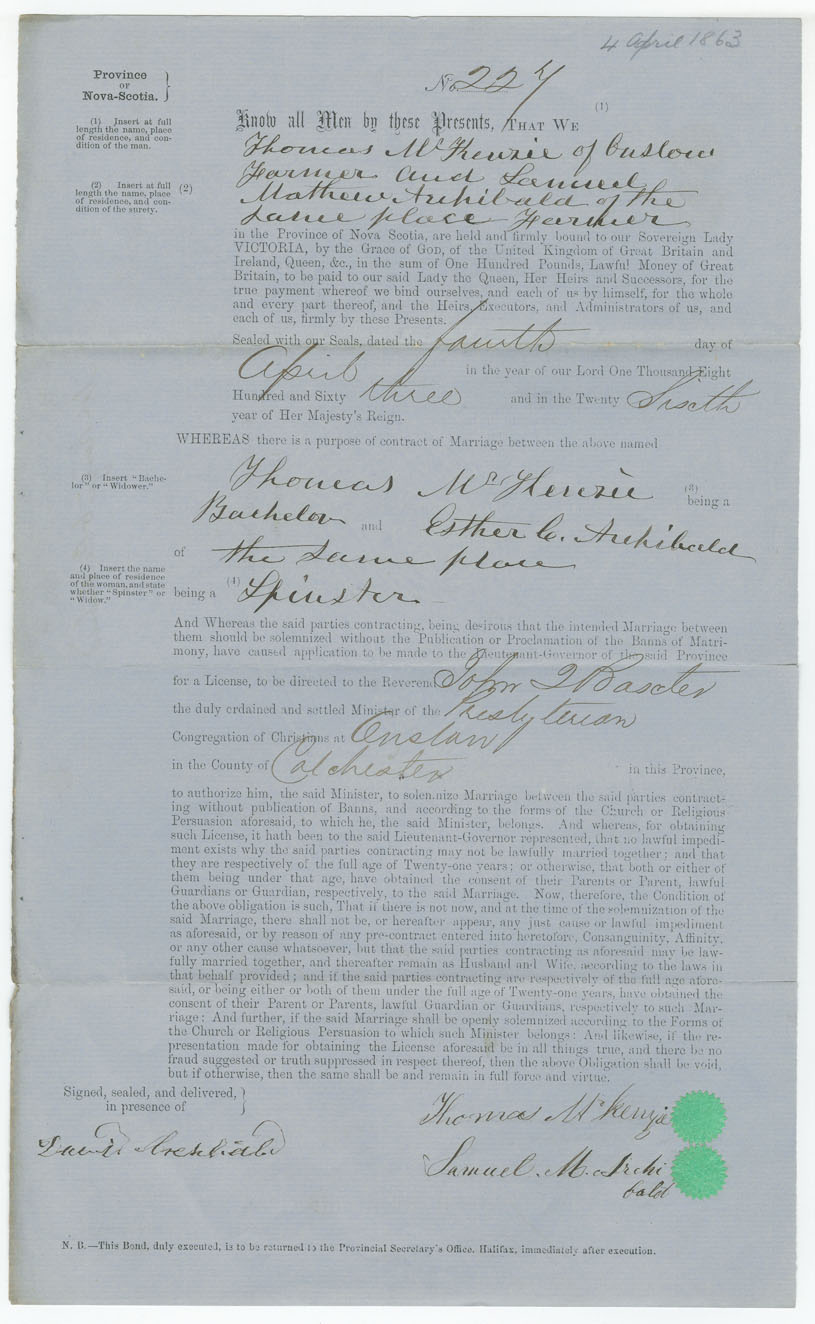 4 April 1863
Province
OF
Nova-Scotia.
No. 227
(1)
(1) Insert at full
length the name, place
of residence, and con-
dition of the man.
Know all Men by these Presents, THAT WE
Thomas McKenzie of Onslow
Farmer and Samuel
(2) Insert at full
length the name, place
of residence, and con-
dition of the surety.
(2)
Mathew Archibald of the
Same place Farmer
in the Province of Nova Scotia, are held and firmly bound to our Sovereign Lady
VICTORIA, by the Grace of GOD, of the United Kingdom of Great Britain and
Ireland, Queen, &c., in the sum of One Hundred Pounds, Lawful Money of Great
Britain, to be paid to our said Lady the Queen, Her Heirs and Successors, for the
true payment whereof we bind ourselves, and each of us by himself, for the whole
and every part thereof, and the Heirs, Executors, and Administrators of us, and
each of us, firmly by these Presents.
Sealed with our Seals, dated the fourth day of
April in the year of our Lord One Thousand Eight
Hundred and Sixty three and in the Twenty Sixth
year of Her Majesty's Reign.
WHEREAS there is a purpose of contract of Marriage between the above named
(3) Insert "Bache-
lor" or "Widower."
Thomas McKenzie (3) being a
Bachelor and Esther C. Archibald
of the Same place
(4) Insert the name
and place of residence
of the woman, and state
whether "Spinster" or
"Widow."
being a (4) Spinster
And Whereas the said parties contracting, being desirous that the intended Marriage between
them should be solemnized without the Publication or Proclamation of the Banns of Matri-
mony, have caused application to be made to the Lieutenant-Governor of the said Province
for a License, to be directed to the Reverend John I Baxter
the duly ordained and settled Minister of the Presbyterian
Congregation of Christians at Onslow
in the County of Colchester in this Province,
to authorize him, the said Minister, to solemnize Marriage between the said parties contract-
ing without publication of Banns, and according to the forms of the Church or Religious
Persuasion aforesaid, to which he, the said Minister, belongs. And whereas, for obtaining
such License, it hath been to the said Lieutenant-Governor represented, that no lawful impedi-
ment exists why the said parties contracting may not be lawfully married together; and that
they are respectively of the full age of Twenty-one years; or otherwise, that both or either of
them being under that age, have obtained the consent of their Parents or Parent, lawful
Guardians or Guardian, respectively, to the said Marriage. Now, therefore, the Condition of
the above obligation is such, That if there is not now, and at the time of the solemnization of the
said Marriage, there shall not be, or hereafter appear, any just cause or lawful impediment
as aforesaid, or by reason of any pre-contract entered into heretofore, Consanguinity, Affinity,
or any other cause whatsoever, but that the said parties contracting as aforesaid may be law-
fully married together, and thereafter remain as Husband and Wife, according to the laws in
that behalf provided; and if the said parties contracting are respectively of the full age afore-
said, or being either or both of them under the full age of Twenty-one years, have obtained the
consent of their Parent or Parents, lawful Guardian or Guardians, respectively to such Mar-
riage: And further, if the said Marriage shall be openly solemnized according to the Forms of
the Church or Religious Persuasion to which such Minister belongs: And likewise, if the re-
presentation made for obtaining the License aforesaid be in all things true, and there be no
fraud suggested or truth suppressed in respect thereof, then the above Obligation shall be void,
but if otherwise, then the same shall be and remain in full force and virtue.
Signed, sealed, and delivered,
in presence of
Thomas McKenzie
David Archibald
Samuel M. Archi
bald
N. B.—This Bond, duly executed, is to be returned to the Provincial Secretary's Office, Halifax, immediately after execution.